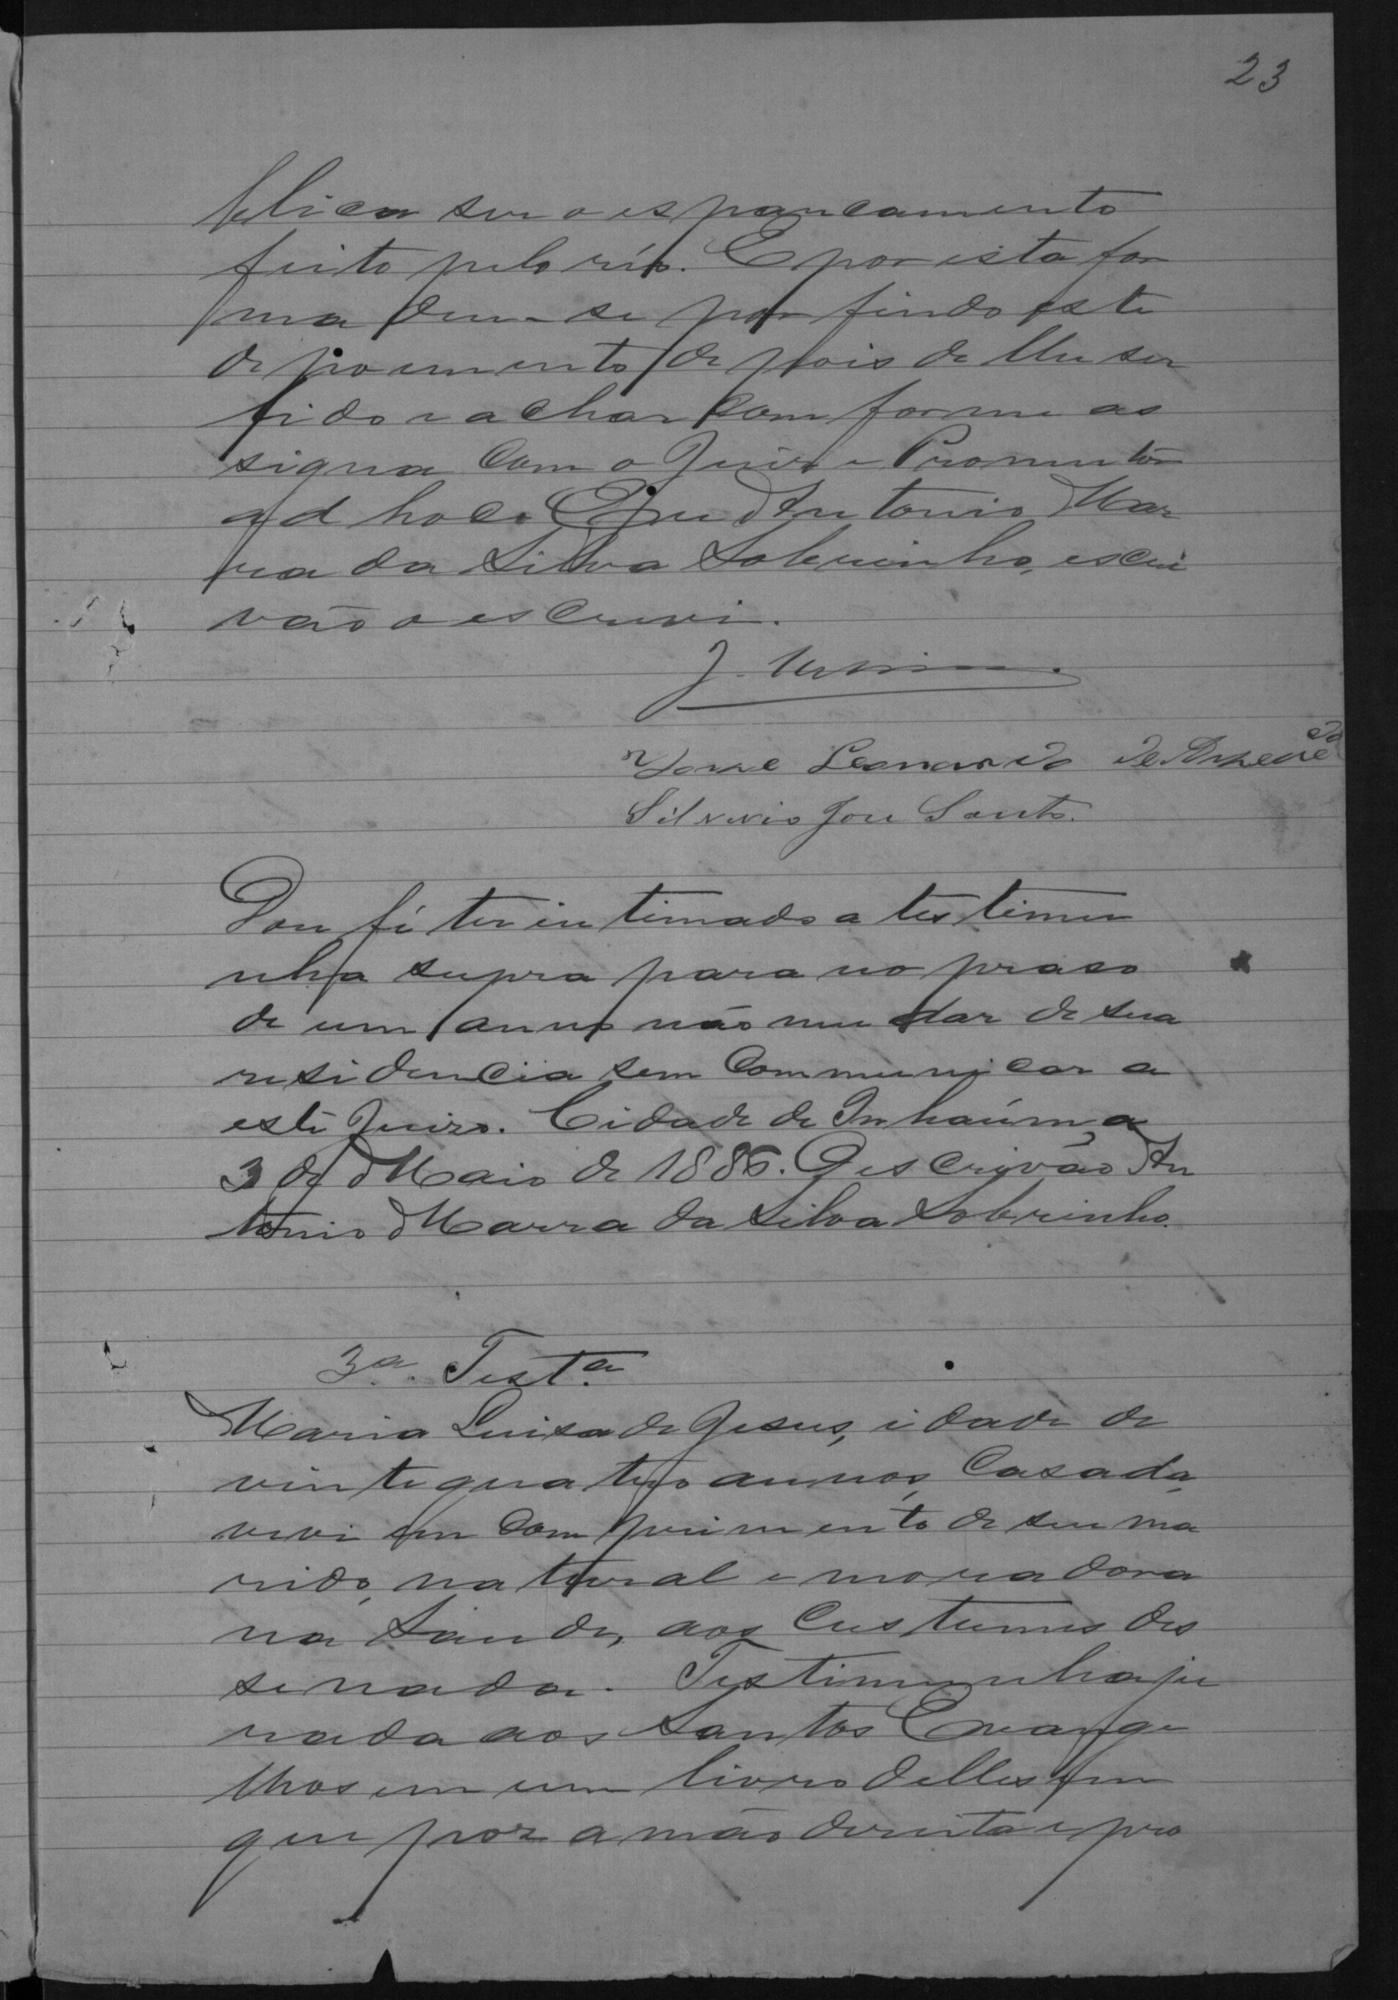 23
blica ser o espancamento
feito pelo réo. E por esta for
ma deu-se por findo este
depoimento, depois de lhe ser
lido e achar comforme as
signa com o Juiz e Promutor
ad hoc. Eu Antonio Mar
ra da Silva Sobrinho, escri
vão o escrevi.
J.
Leonardo de
Silverio José Santos.
Dou fé ter intimado a testemu
nha supra para no praso
de um anno não mudar de sua
residencia sem communicar a
este Juizo. Cidade de Inhaúma
3 de Maio de 1886. O escrivão An
tonio Marra da Silva Sobrinho.
3a. Testa.
Maria Luisa de Jesus, idade de
vinte quatro annos, casada,
vive em comprimento de seu ma
rido, natural e moradora
na Saude, aos custumes dis
se nada. Testimunha ju
rada aos Santos Evange
lhos em um livro delles em
que poz a mão direita e pro